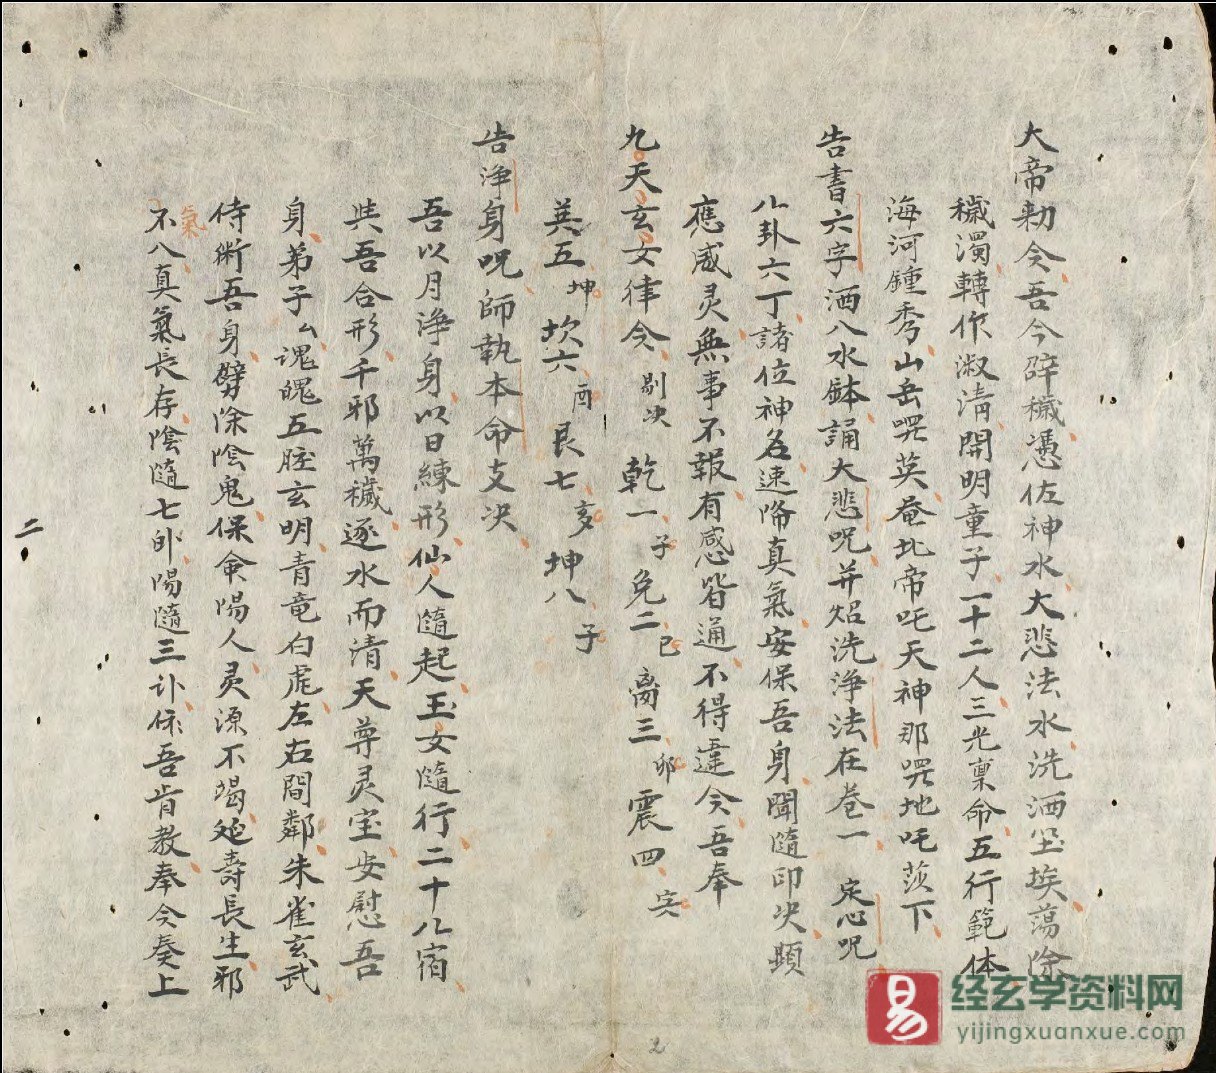 大帝勅令吾今辟穢憑佐神水大悲法水洗洒尘埃蕩除
穢濁轉作淑清開明童子一十二人三光稟命五行範体
海河鍾秀山岳㖿英菴北帝吒天神那㖿地吒茨下
告書六字洒八水鉢誦大悲呪并炤洗淨法在卷一 定心呪
八卦六丁諸位神名速降真氣安保吾身聞隨印决顕
應感灵無事不報有感皆通不得違令吾奉
九天玄女律令 剔决 乾一 子 免二 巳 离三 卯 震四 寅
英五 坤 坎六 酉 艮七 亥 坤八 子
告淨身呪師執本命支决
吾以月淨身以日練形仙人隨起玉女隨行二十八宿
共吾合形千邪萬穢逐水而清天尊灵宝安慰吾
身弟子厶魂魄五臟玄明青竜白虎左右間鄰朱雀玄武
侍衛吾身劈除陰鬼保命陽人灵源不竭延壽長生邪
氣
不入真氣長存陰隨七 陽隨三 依吾肯教奉令奏上
二
2
易
经玄学资料网
yijingxuanxue.com